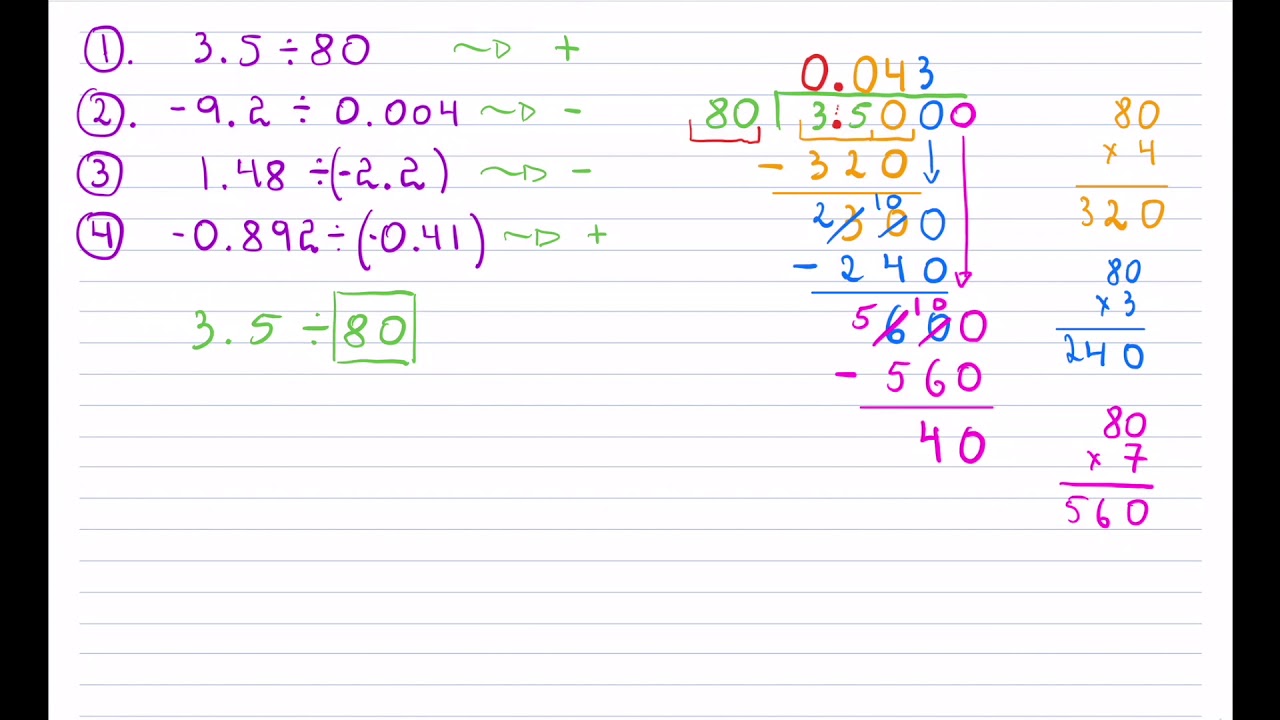 ① . 3.5 ÷ 80 ⇝ +
② . -9.2 ÷ 0.004 ⇝ -
③ 1.48 ÷ (-2.2) ⇝ -
④ -0.892 ÷ (-0.41) ⇝ +
3.5 ÷ 80
0.043
80 3.5000
- 320
2 3 10 0 0
- 240
5 6 10 0 0
- 560
40
80
x 4
320
80
x 3
240
80
x 7
560